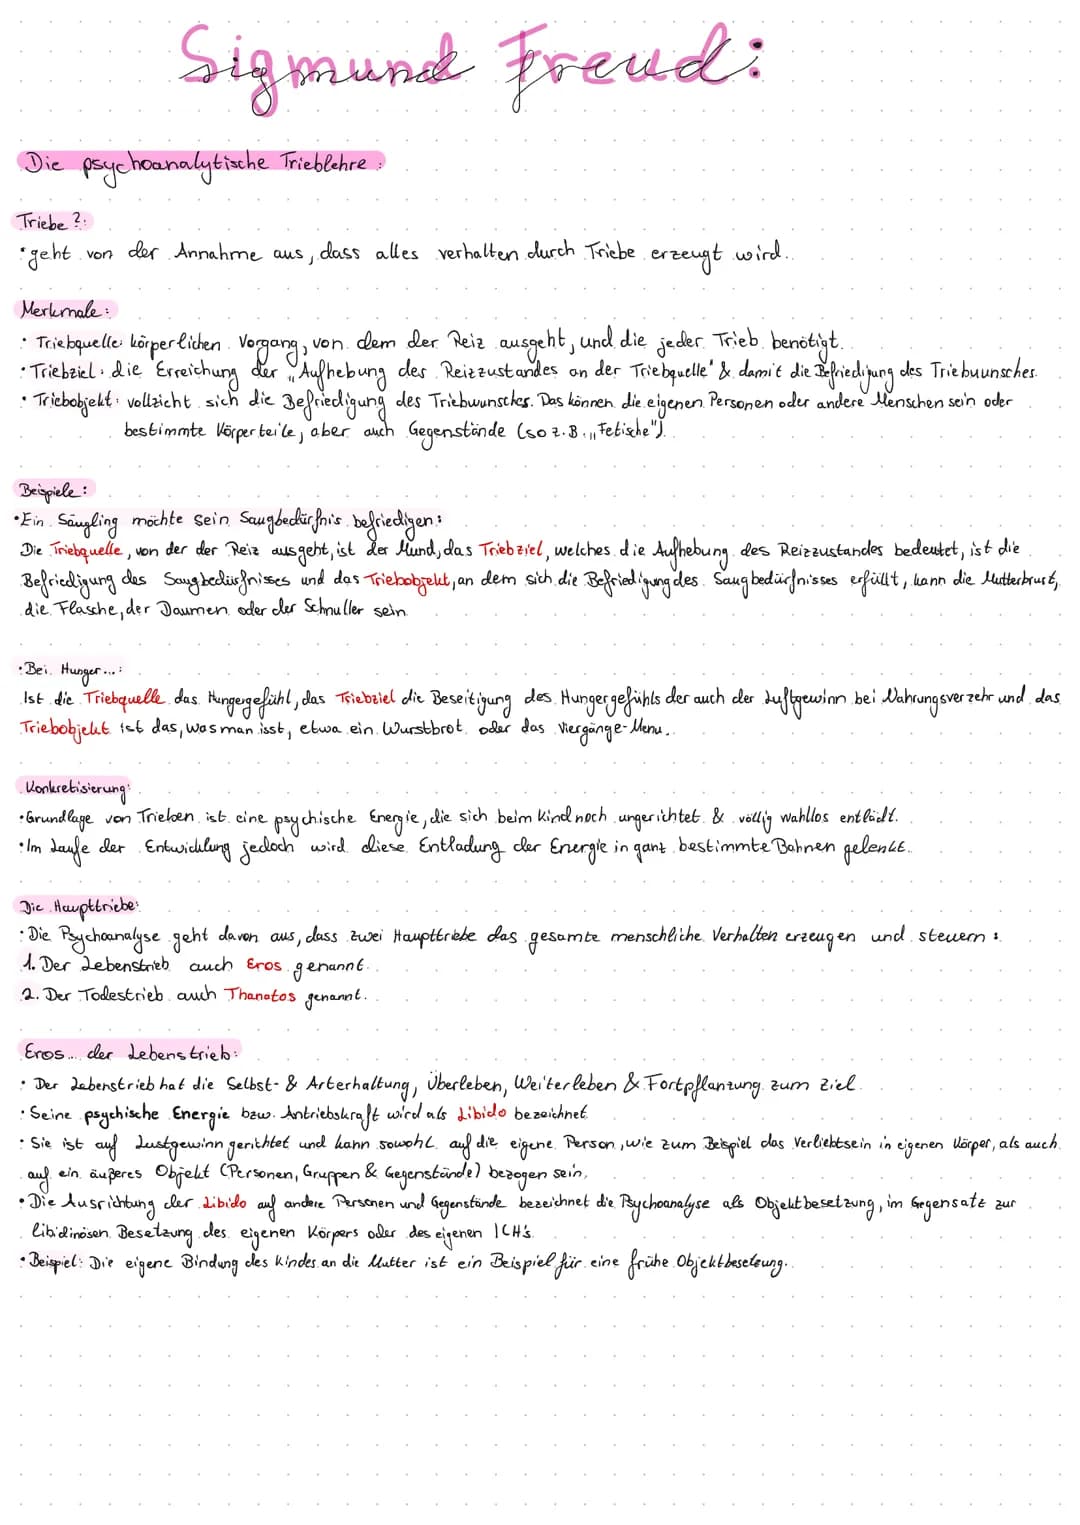 Sigmund Freud:
Die psychoanalytische Trieblehre:
Triebe?:
• geht von der Annahme aus, dass alles verhalten durch Triebe erzeugt wird.
Merkmale:
• Triebquelle: körperlichen Vorgang, von dem der Reiz ausgeht, und die jeder Trieb benötigt.
• Triebziel: die Erreichung der „Aufhebung des Reizzustandes an der Triebquelle" & damit die Befriedigung des Triebwunsches.
• Triebobjekt: vollzieht sich die Befriedigung des Triebwunsches. Das können die eigenen Personen oder andere Menschen sein oder
bestimmte Körperteile, aber auch Gegenstände (so z.B. „Fetische").
Beispiele:
• Ein Säugling möchte sein Saugbedürfnis befriedigen:
Die Triebquelle, von der der Reiz ausgeht, ist der Mund, das Triebziel, welches die Aufhebung des Reizzustandes bedeutet, ist die
Befriedigung des Saugbedürfnisses und das Triebobjekt, an dem sich die Befriedigung des Saugbedürfnisses erfüllt, kann die Mutterbrust,
die Flasche, der Daumen oder der Schnuller sein
• Bei Hunger...:
Ist die Triebquelle das Hungergefühl, das Triebziel die Beseitigung des Hungergefühls der auch der Luftgewinn bei Nahrungsverzehr und das
Triebobjekt ist das, was man isst, etwa ein Wurstbrot oder das Viergänge-Menu.
Konkretisierung:
• Grundlage von Trieben ist eine psychische Energie, die sich beim Kind noch ungerichtet & völlig wahllos entlädt.
• Im Laufe der Entwicklung jedoch wird diese Entladung der Energie in ganz bestimmte Bahnen gelenkt.
Die Haupttriebe:
• Die Psychoanalyse geht davon aus, dass zwei Haupttriebe das gesamte menschliche Verhalten erzeugen und steuern:
1. Der Lebenstrieb auch Eros genannt.
2. Der Todestrieb auch Thanatos genannt.
Eros... der Lebenstrieb:
• Der Lebenstrieb hat die Selbst- & Arterhaltung, Überleben, Weiterleben & Fortpflanzung zum Ziel.
• Seine psychische Energie bzw. Antriebskraft wird als Libido bezeichnet
• Sie ist auf Lustgewinn gerichtet und kann sowohl auf die eigene Person, wie zum Beispiel das Verliebtsein in eigenen Körper, als auch
auf ein äußeres Objekt (Personen, Gruppen & Gegenstände) bezogen sein.
• Die Ausrichtung der Libido auf andere Personen und Gegenstände bezeichnet die Psychoanalyse als Objektbesetzung, im Gegensatz zur
libidinösen Besetzung des eigenen Körpers oder des eigenen ICH's.
• Beispiel: Die eigene Bindung des Kindes an die Mutter ist ein Beispiel für eine frühe Objektbesetzung.